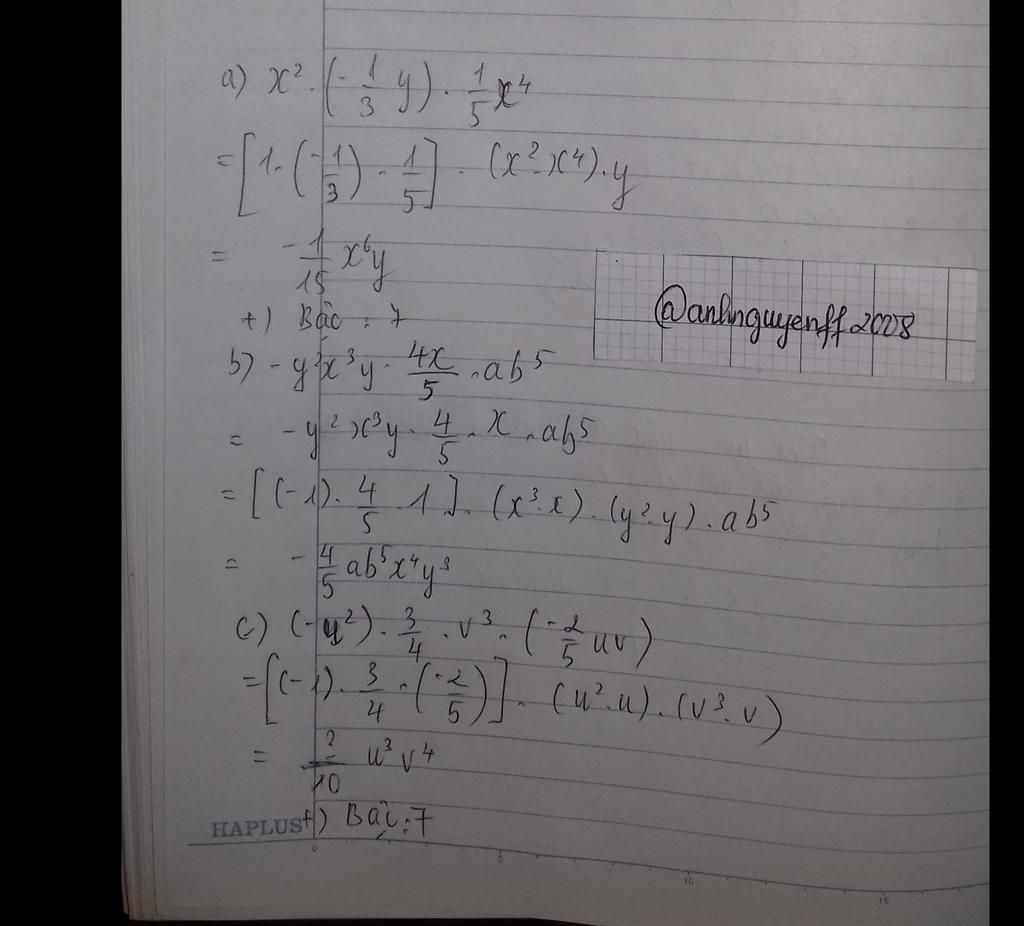 a) x² · (-1/3 y) · 1/5 x⁴
= [1 · (-1/3) · 1/5] · (x² · x⁴) · y
= -1/15 x⁶y
@anhnguyenff2008
+) Bậc : 7
b) -y²x³y · 4x/5 · ab⁵
= -y²x³y · 4/5 · x · ab⁵
= [(-1) · 4/5 · 1] · (x³ · x) · (y² · y) · ab⁵
= -4/5 ab⁵x⁴y³
c) (-u²) · 3/4 · v³ · (-2/5 uv)
= [(-1) · 3/4 · (-2/5)] · (u² · u) · (v³ · v)
= /10 u³v⁴
+) Bậc : 7
HAPLUS
0 5 10 15